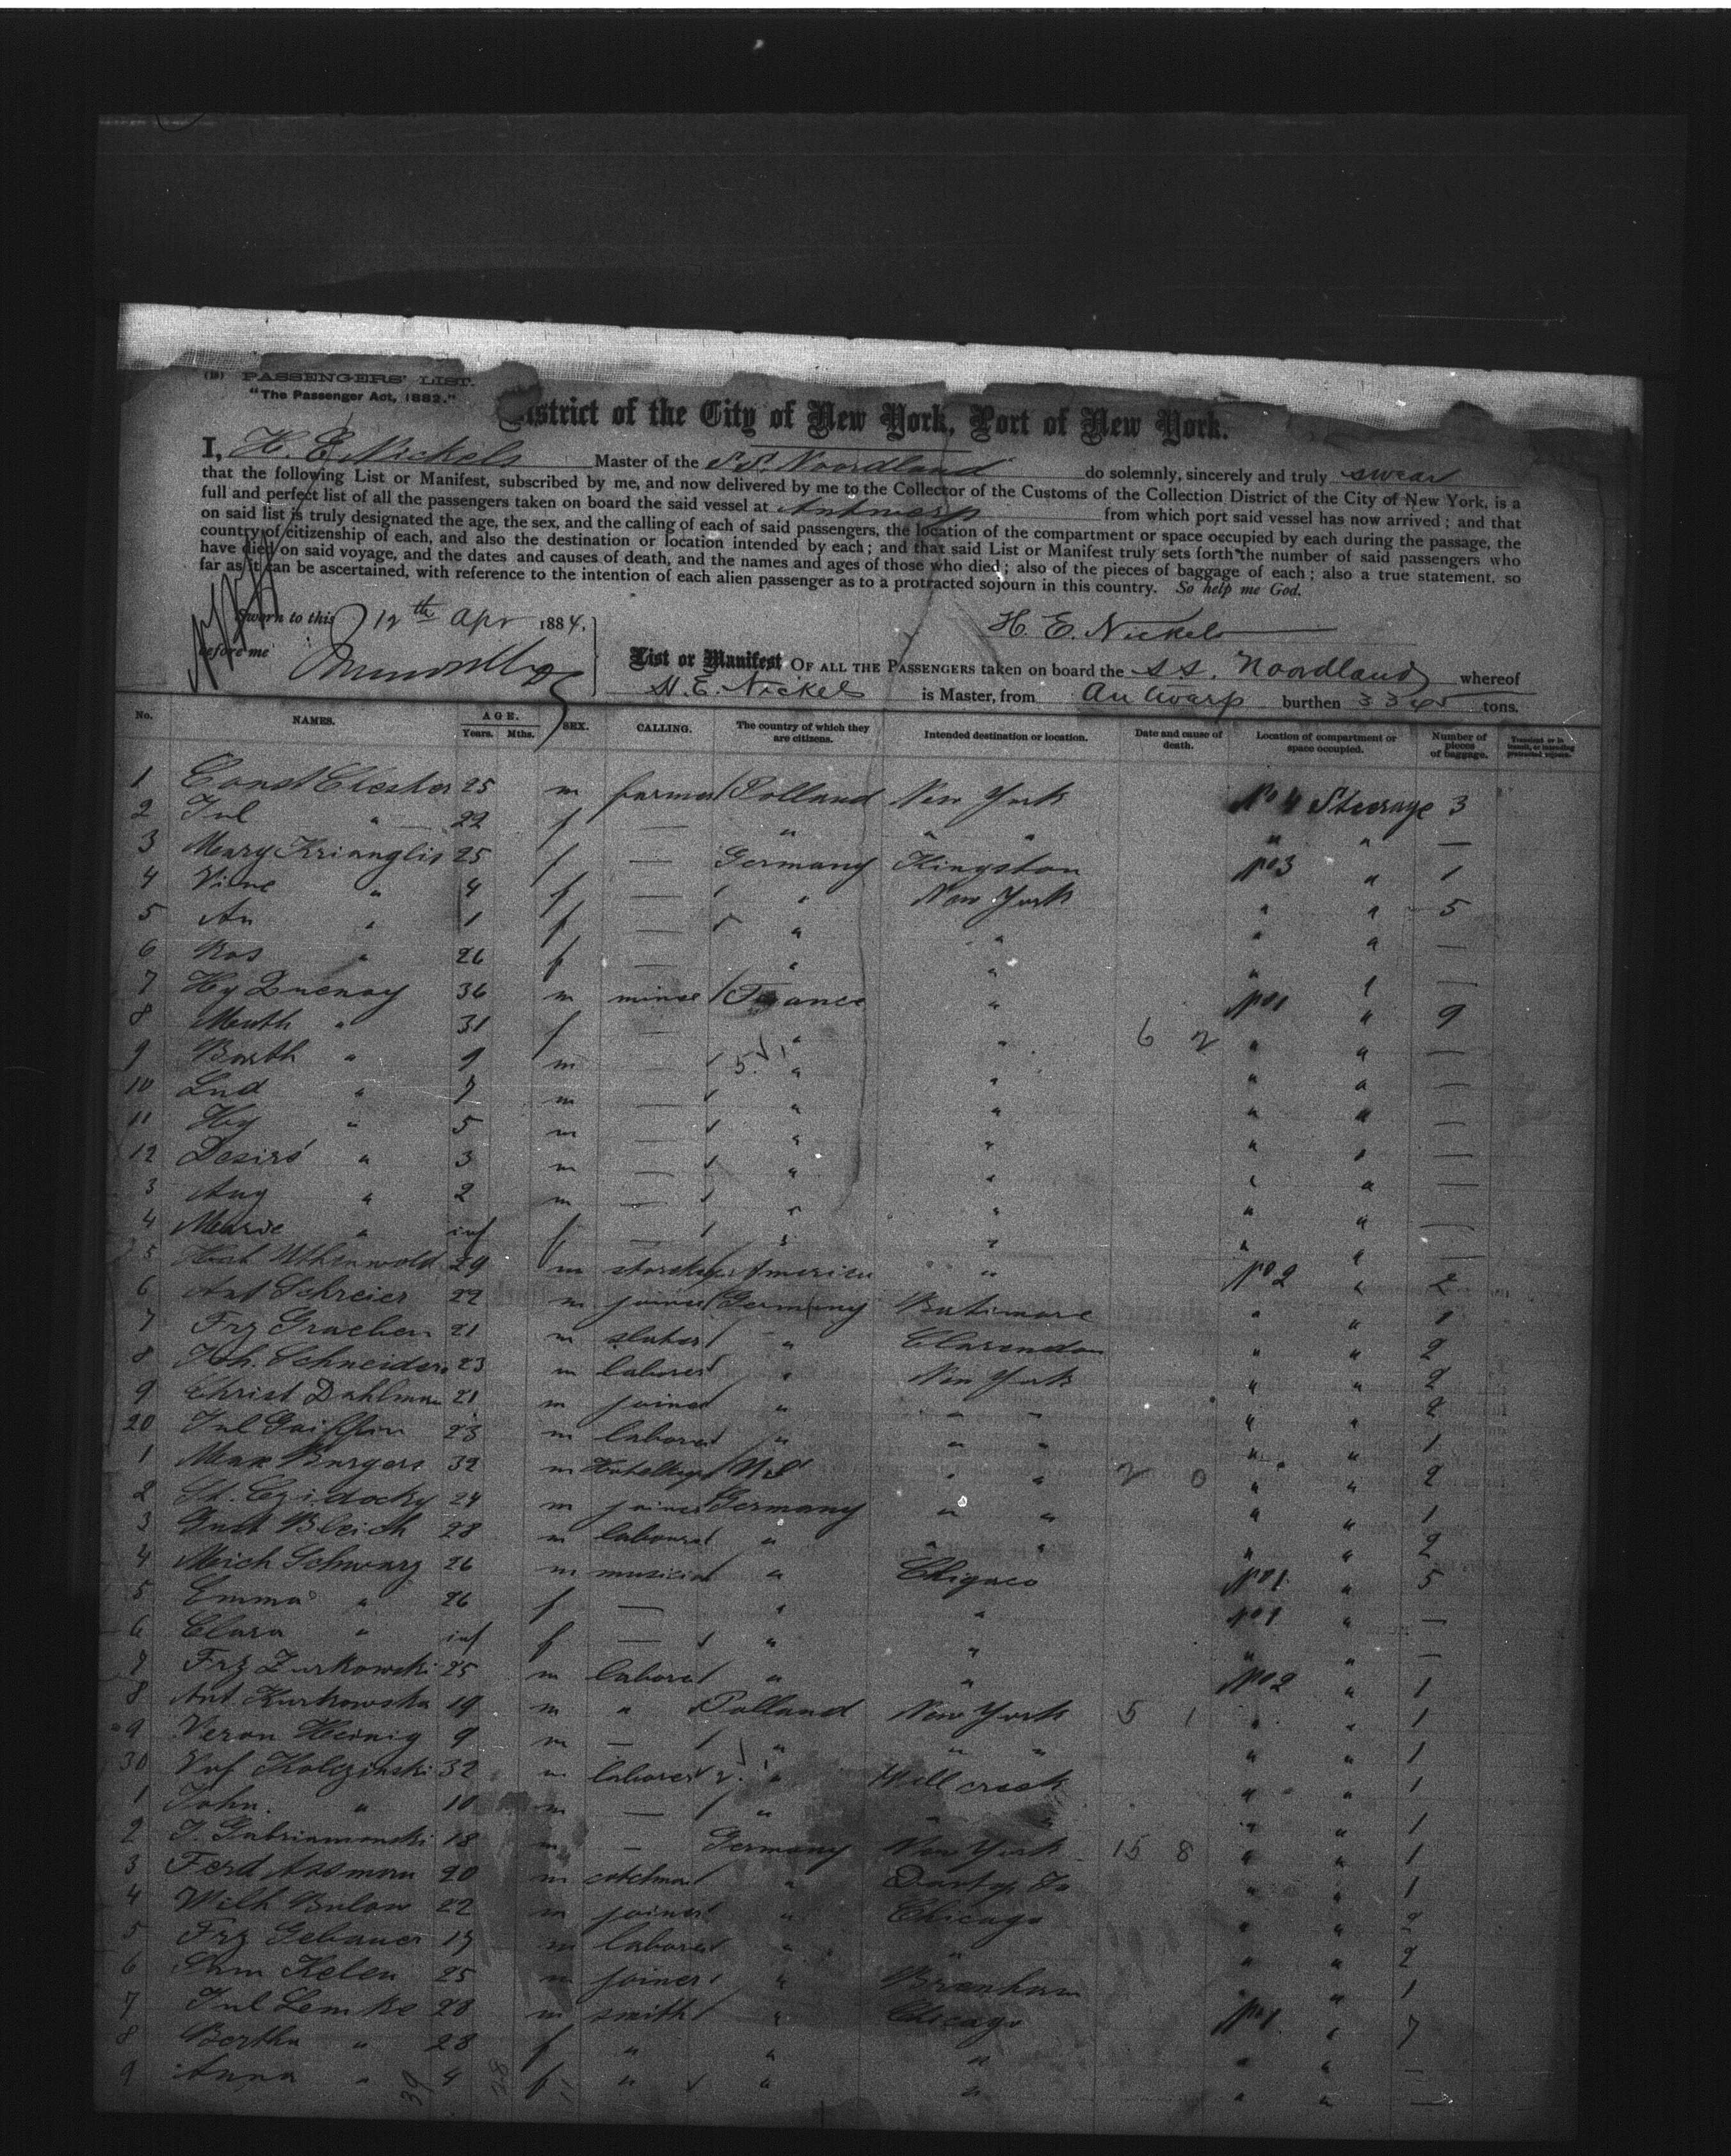 (18) PASSENGERS' LIST.
"The Passenger Act, 1882."
District of the City of New York, Port of New York.
I, H. E. Nickels Master of the S.S. Noordland do solemnly, sincerely and truly swear
that the following List or Manifest, subscribed by me, and now delivered by me to the Collector of the Customs of the Collection District of the City of New York, is a
full and perfect list of all the passengers taken on board the said vessel at Antwerp from which port said vessel has now arrived; and that
on said list is truly designated the age, the sex, and the calling of each of said passengers, the location of the compartment or space occupied by each during the passage, the
country of citizenship of each, and also the destination or location intended by each; and that said List or Manifest truly sets forth the number of said passengers who
have died on said voyage, and the dates and causes of death, and the names and ages of those who died; also of the pieces of baggage of each; also a true statement, so
far as it can be ascertained, with reference to the intention of each alien passenger as to a protracted sojourn in this country. So help me God.
Sworn to this 12th Apr 1884.
before me
H. E. Nickels
List or Manifest OF ALL THE PASSENGERS taken on board the S.S. Noordland whereof
H. E. Nickels is Master, from Antwarp burthen tons.
No. NAMES. AGE. Years. Mths. SEX. CALLING. The country of which they are citizens. Intended destination or location. Date and cause of death. Location of compartment or space occupied. Number of pieces of baggage. Transient or in transit, or intending protracted sojourn.
1 Const 25 m farmer Polland New York No 4 Steerage 3
2 Jul " 22 f — " " " " " —
3 Mary 25 f — Germany Kingston No 3 " 1
4 " 4 f — " New York " " 5
5 An " 1 f — " " " " —
6 Ros " 26 f — " " " —
7 Hy Quenoy 36 m miner France " No 1 " 9
8 " 31 f — " " 6 2 " " —
9 Barth " 9 m — " " " " —
10 Lud " 7 m — " " " " —
11 Hy " 5 m — " " " " —
12 Desiré " 3 m — " " " " —
3 Aug " 2 m — " " " " —
4 Marie " inf f — " " " " —
5 29 m America " No 2 " 2
6 Ant Schreier 22 m joiner Germany Batimore " " 1
7 Frz Graeben 21 m slater " Clarendon " " 2
8 Joh. Schneider 23 m laborer " New York " " 2
9 Christ Dahlman 21 m joiner " " " " " 2
20 Jul 23 m laborer " " " " " 1
1 Max Burgers 32 m U S " " 2 0 " " 2
2 24 m joiner Germany " " " " 1
3 Gust Bleich 28 m labourer " " " " " 2
4 Mich Schwarz 26 m musician " Chigaco No 1 " 5
5 Emma " 26 f — " " No 1 " —
6 Clara " inf f — " " " " —
7 Frz Zurkowski 25 m laborer " " No 2 " 1
8 Ant. Kurkowska 19 m " Polland New York 5 1 " " 1
9 Veron Heinig 9 m — " " " " " 1
30 Kolczinski 32 m laborer " Mill creek " " 1
1 John. " 10 m — " " " " " 1
2 J. 18 m — Germany New York 15 8 " " 1
3 Ferd Assman 20 m " " " 1
4 Wilh Bulow 22 m joiner " Chicago " " 2
5 Frz Gebauer 19 m laborer " " " " 2
6 Sam Kelen 25 m joiner " Brenham " 1
7 Jul Lemke 28 m smith " Chicago No 1 " 7
8 Bertha " 28 f " " " " " —
9 Anna " 4 f " " " " " —
39